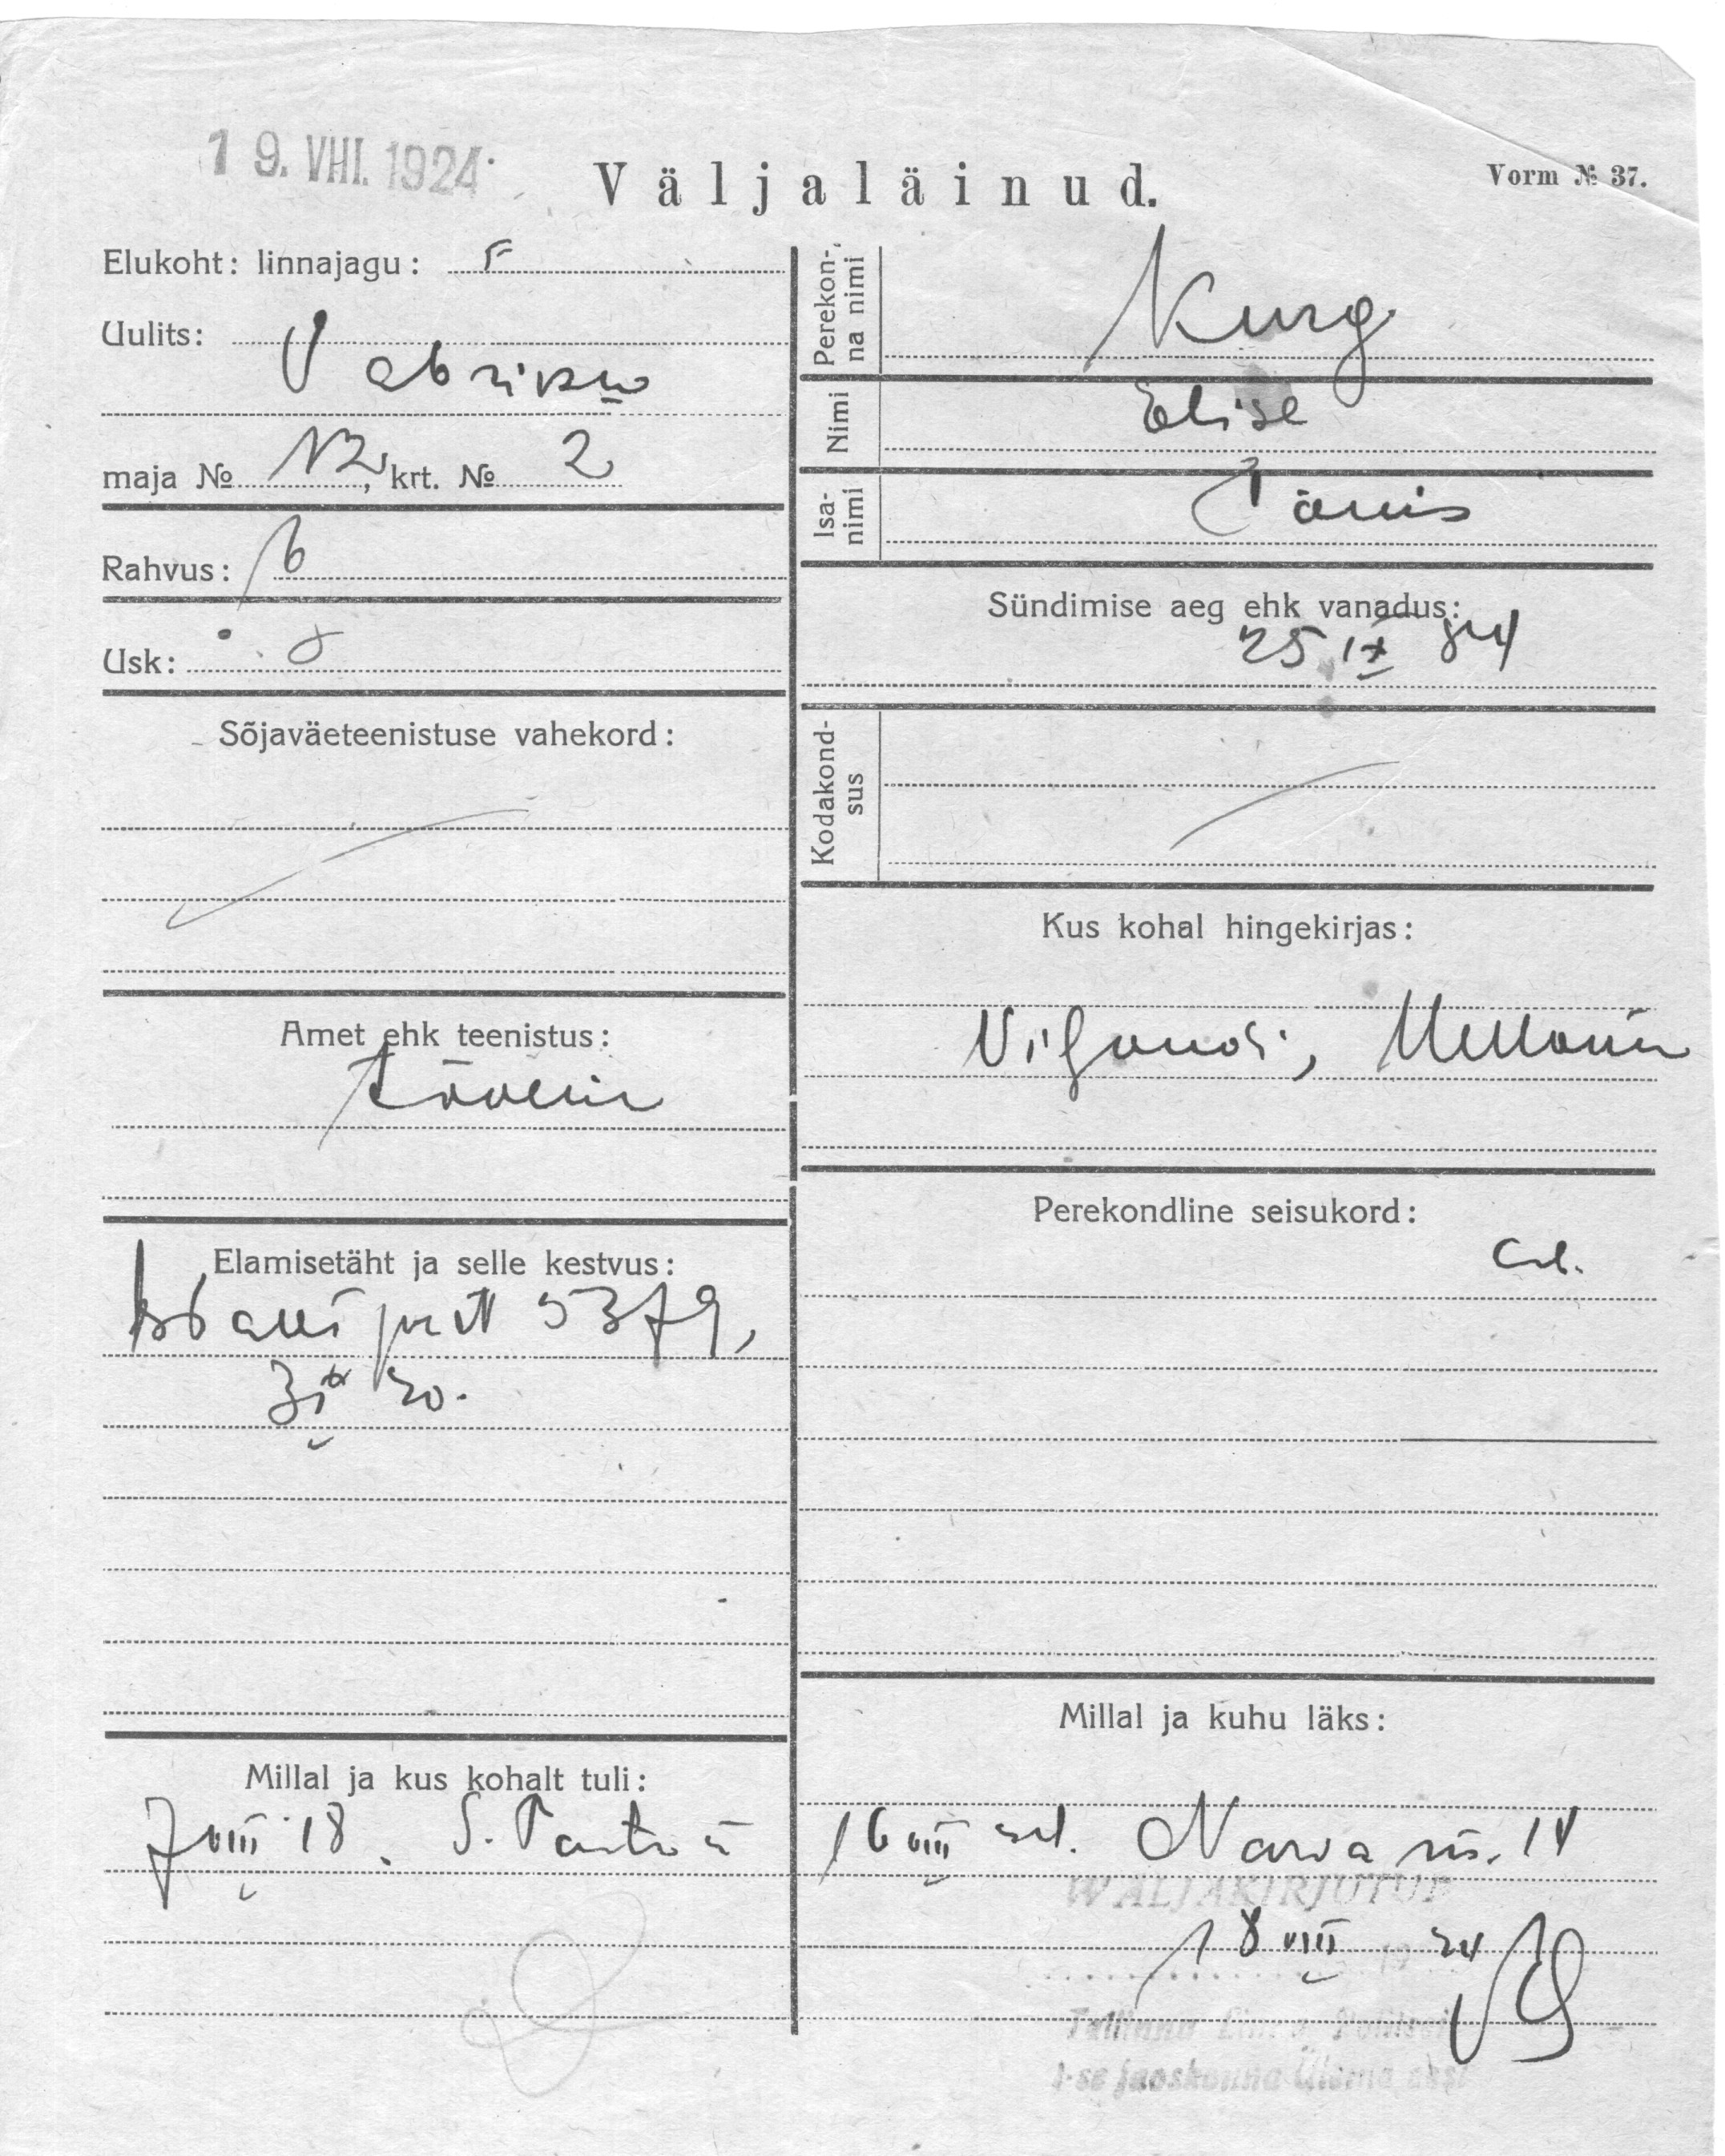 19. VIII. 1924.
Väljaläinud.
Vorm № 37.
Elukoht: linnajagu:
Uulits:
Vabriku
maja № 12, krt. № 2
Rahvus:
Usk:
Sõjaväeteenistuse vahekord:
Amet ehk teenistus:
Elamisetäht ja selle kestvus:
5379,
20.
Millal ja kus kohalt tuli:
7 VIII 18. S. Tartu
Perekon-
na nimi
Kurg
Nimi
Elise
Isa-
nimi
Tõnis
Sündimise aeg ehk vanadus:
25 IX 84
Kodakond-
sus
Kus kohal hingekirjas:
Viljandi,
Perekondline seisukord:
Millal ja kuhu läks:
16 VIII Narva m. 14
WÄLJAKIRJUTUD
18 VIII 24
Tallinna Linna Politsei
1-se jaoskonna Ülema abi